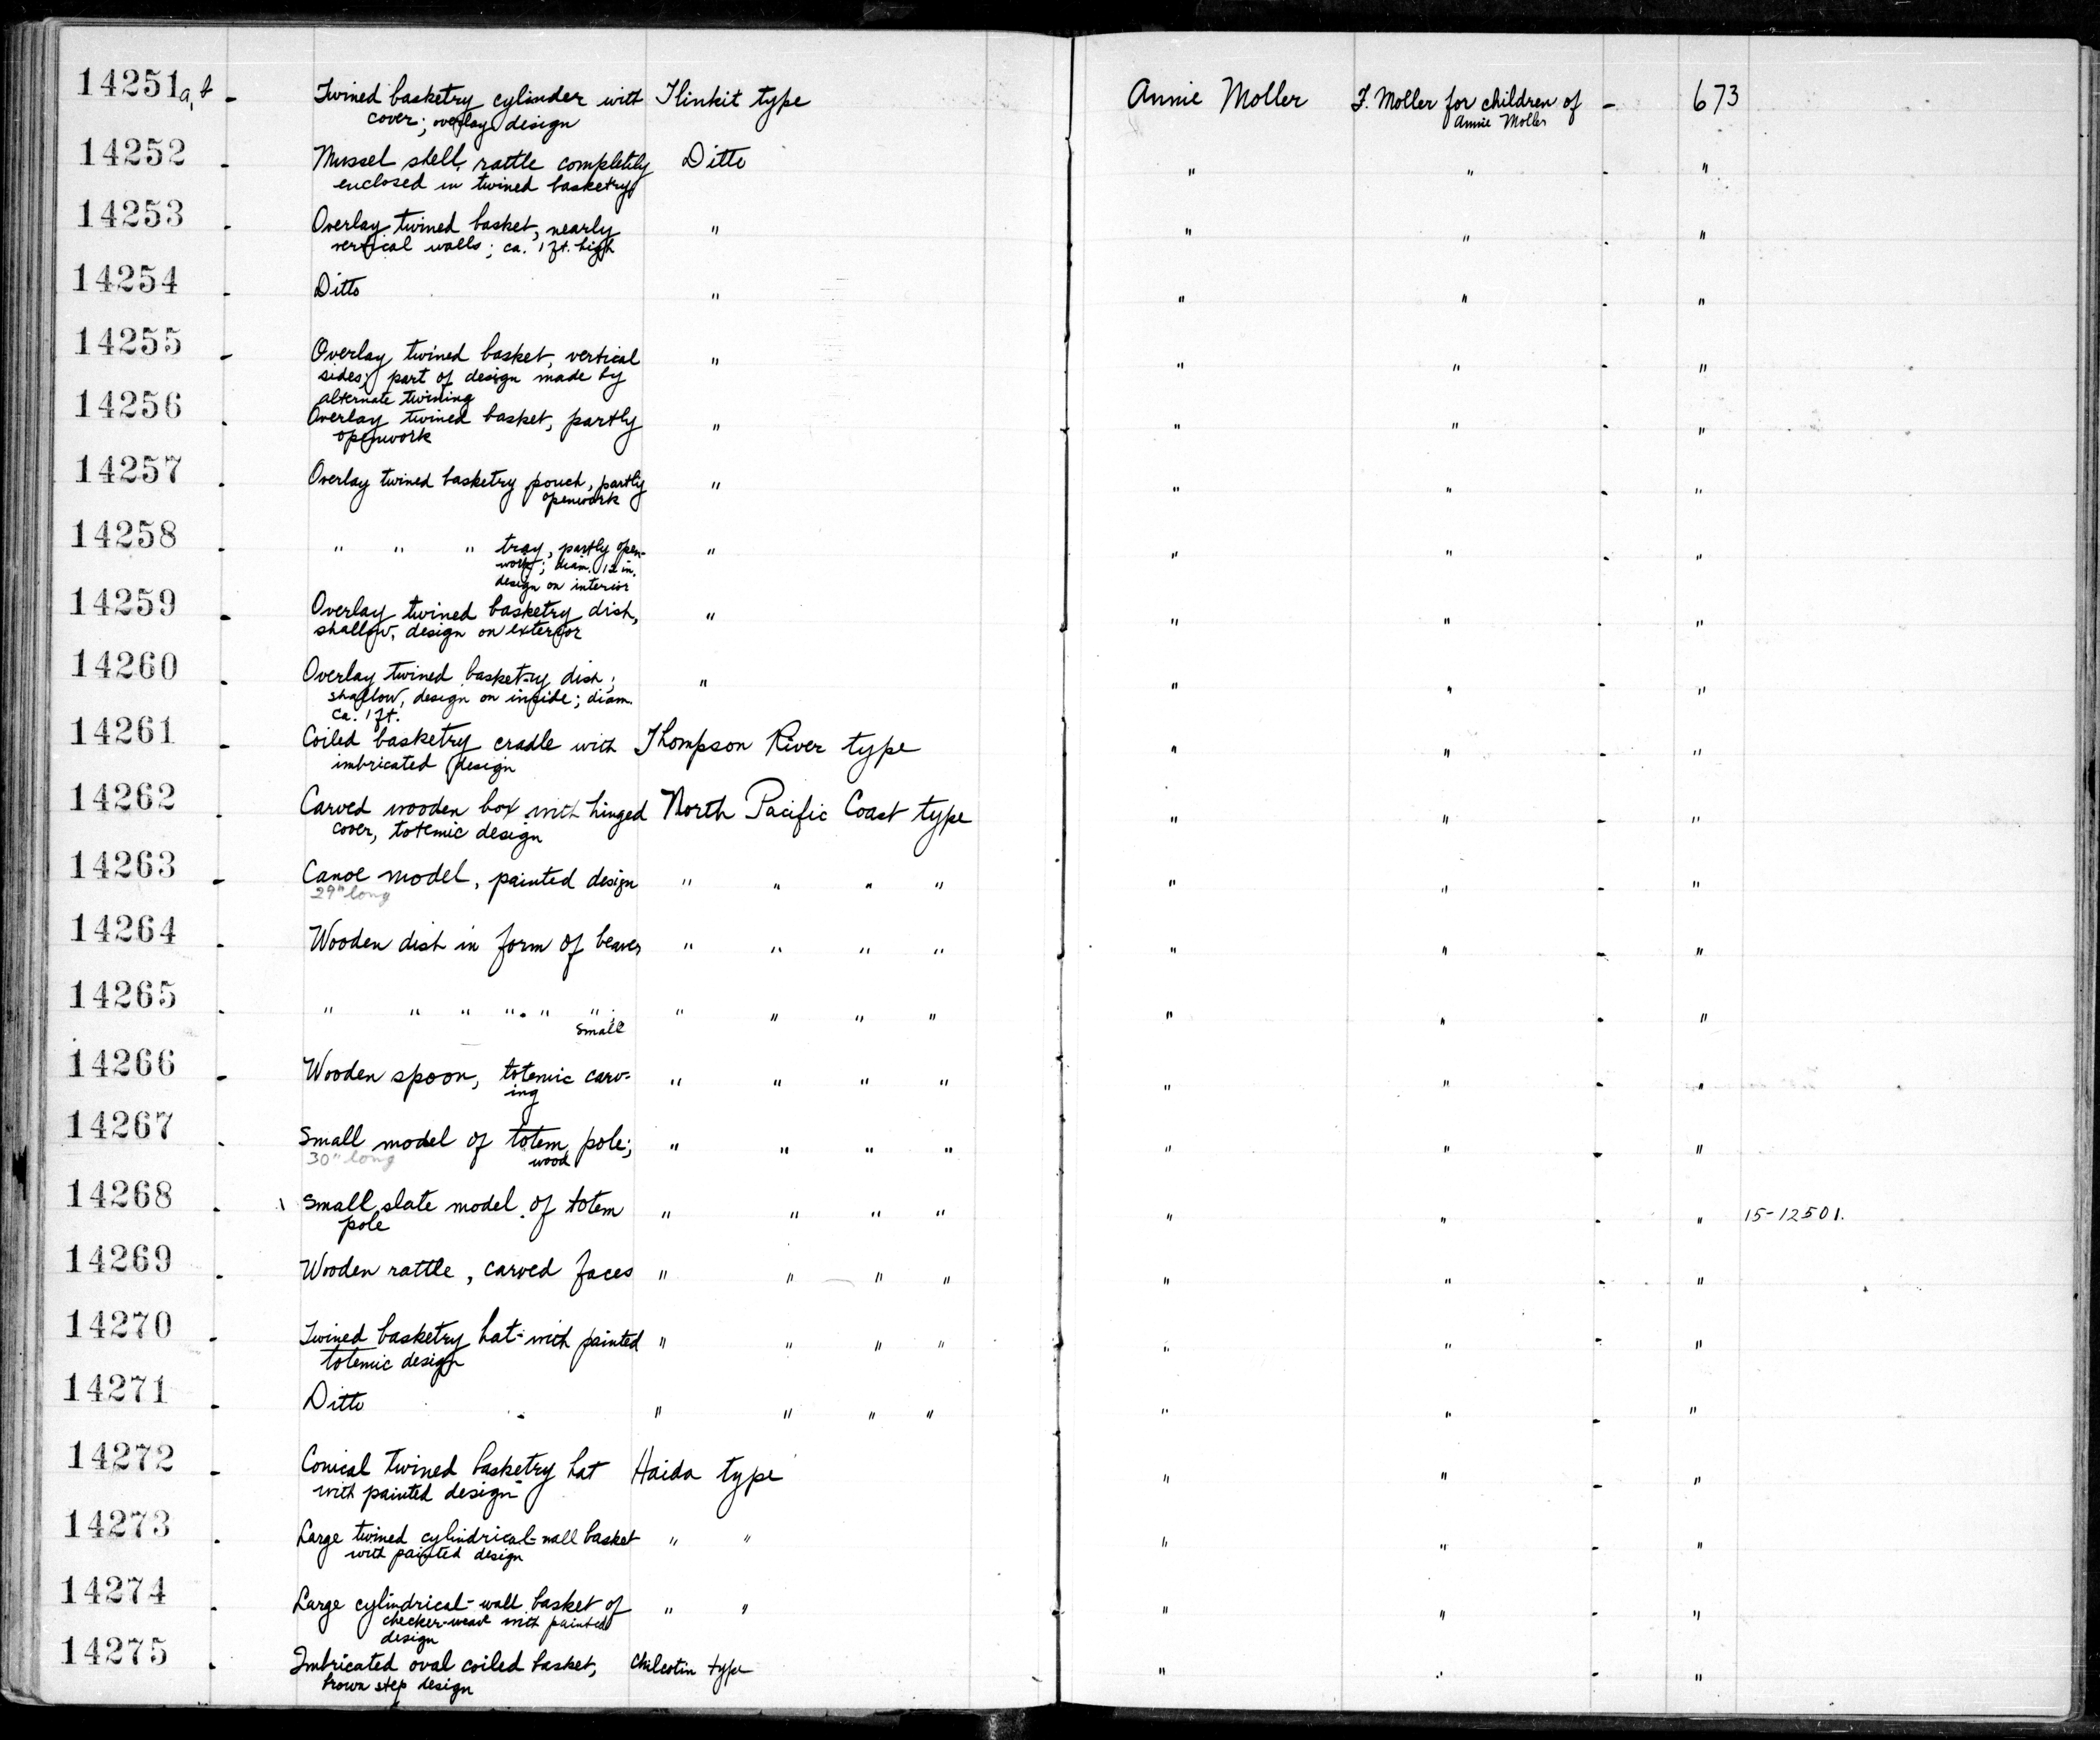 14251 a, b - Twined basketry cylinder with Tlinkit type Annie Moller F. Moller for children of - 673
cover; overlay design Annie Moller
14252 - Mussel shell rattle completely Ditto " " - "
enclosed in twined basketry
14253 - Overlay twined basket, nearly " " " - "
vertical walls; ca. 1 ft. high
14254 - Ditto " " " - "
14255 - Overlay twined basket, vertical " " " - "
sides; part of design made by
alternate twining
14256 - Overlay twined basket, partly " " " - "
openwork
14257 - Overlay twined basketry pouch, partly " " " - "
openwork
14258 - " " " tray, partly open- " " " - "
work; diam. 12 in.
design on interior
14259 - Overlay twined basketry dish, " " " - "
shallow, design on exterior
14260 - Overlay twined basketry dish; " " " - "
shallow, design on inside; diam.
ca. 1 ft.
14261 - Coiled basketry cradle with Thompson River type " " - "
imbricated design
14262 - Carved wooden box with hinged North Pacific Coast type " " - "
cover, totemic design
14263 - Canoe model, painted design " " " " " " - "
29" long
14264 - Wooden dish in form of beaver " " " " " " - "
14265 - " " " " " " ; " " " " " " - "
small
14266 - Wooden spoon, totemic carv- " " " " " " - "
ing
14267 - Small model of totem pole; " " " " " " - "
30" long wood
14268 - \ Small slate model of totem " " " " " " - " 15-12501.
pole
14269 - Wooden rattle, carved faces " " " " " " - "
14270 - Twined basketry hat with painted " " " " " " - "
totemic design
14271 - Ditto " " " " " " - "
14272 - Conical twined basketry hat Haida type " " - "
with painted design
14273 - Large twined cylindrical-wall basket " " " " - "
with painted design
14274 - Large cylindrical-wall basket of " " " " - "
checker-weave with painted
design
14275 - Imbricated oval coiled basket, Chilcotin type " " - "
brown step design